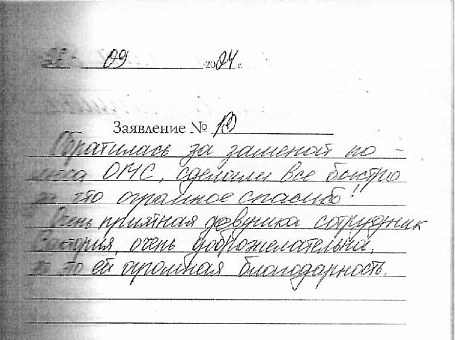 09 2024 г.
Заявление № 10
Обратилась за заменой по-
лиса ОМС, сделали все быстро
за что огромное спасибо!!
Очень приятная девушка сотрудник
Виктория, очень доброжелательна,
за то ей огромная благодарность.